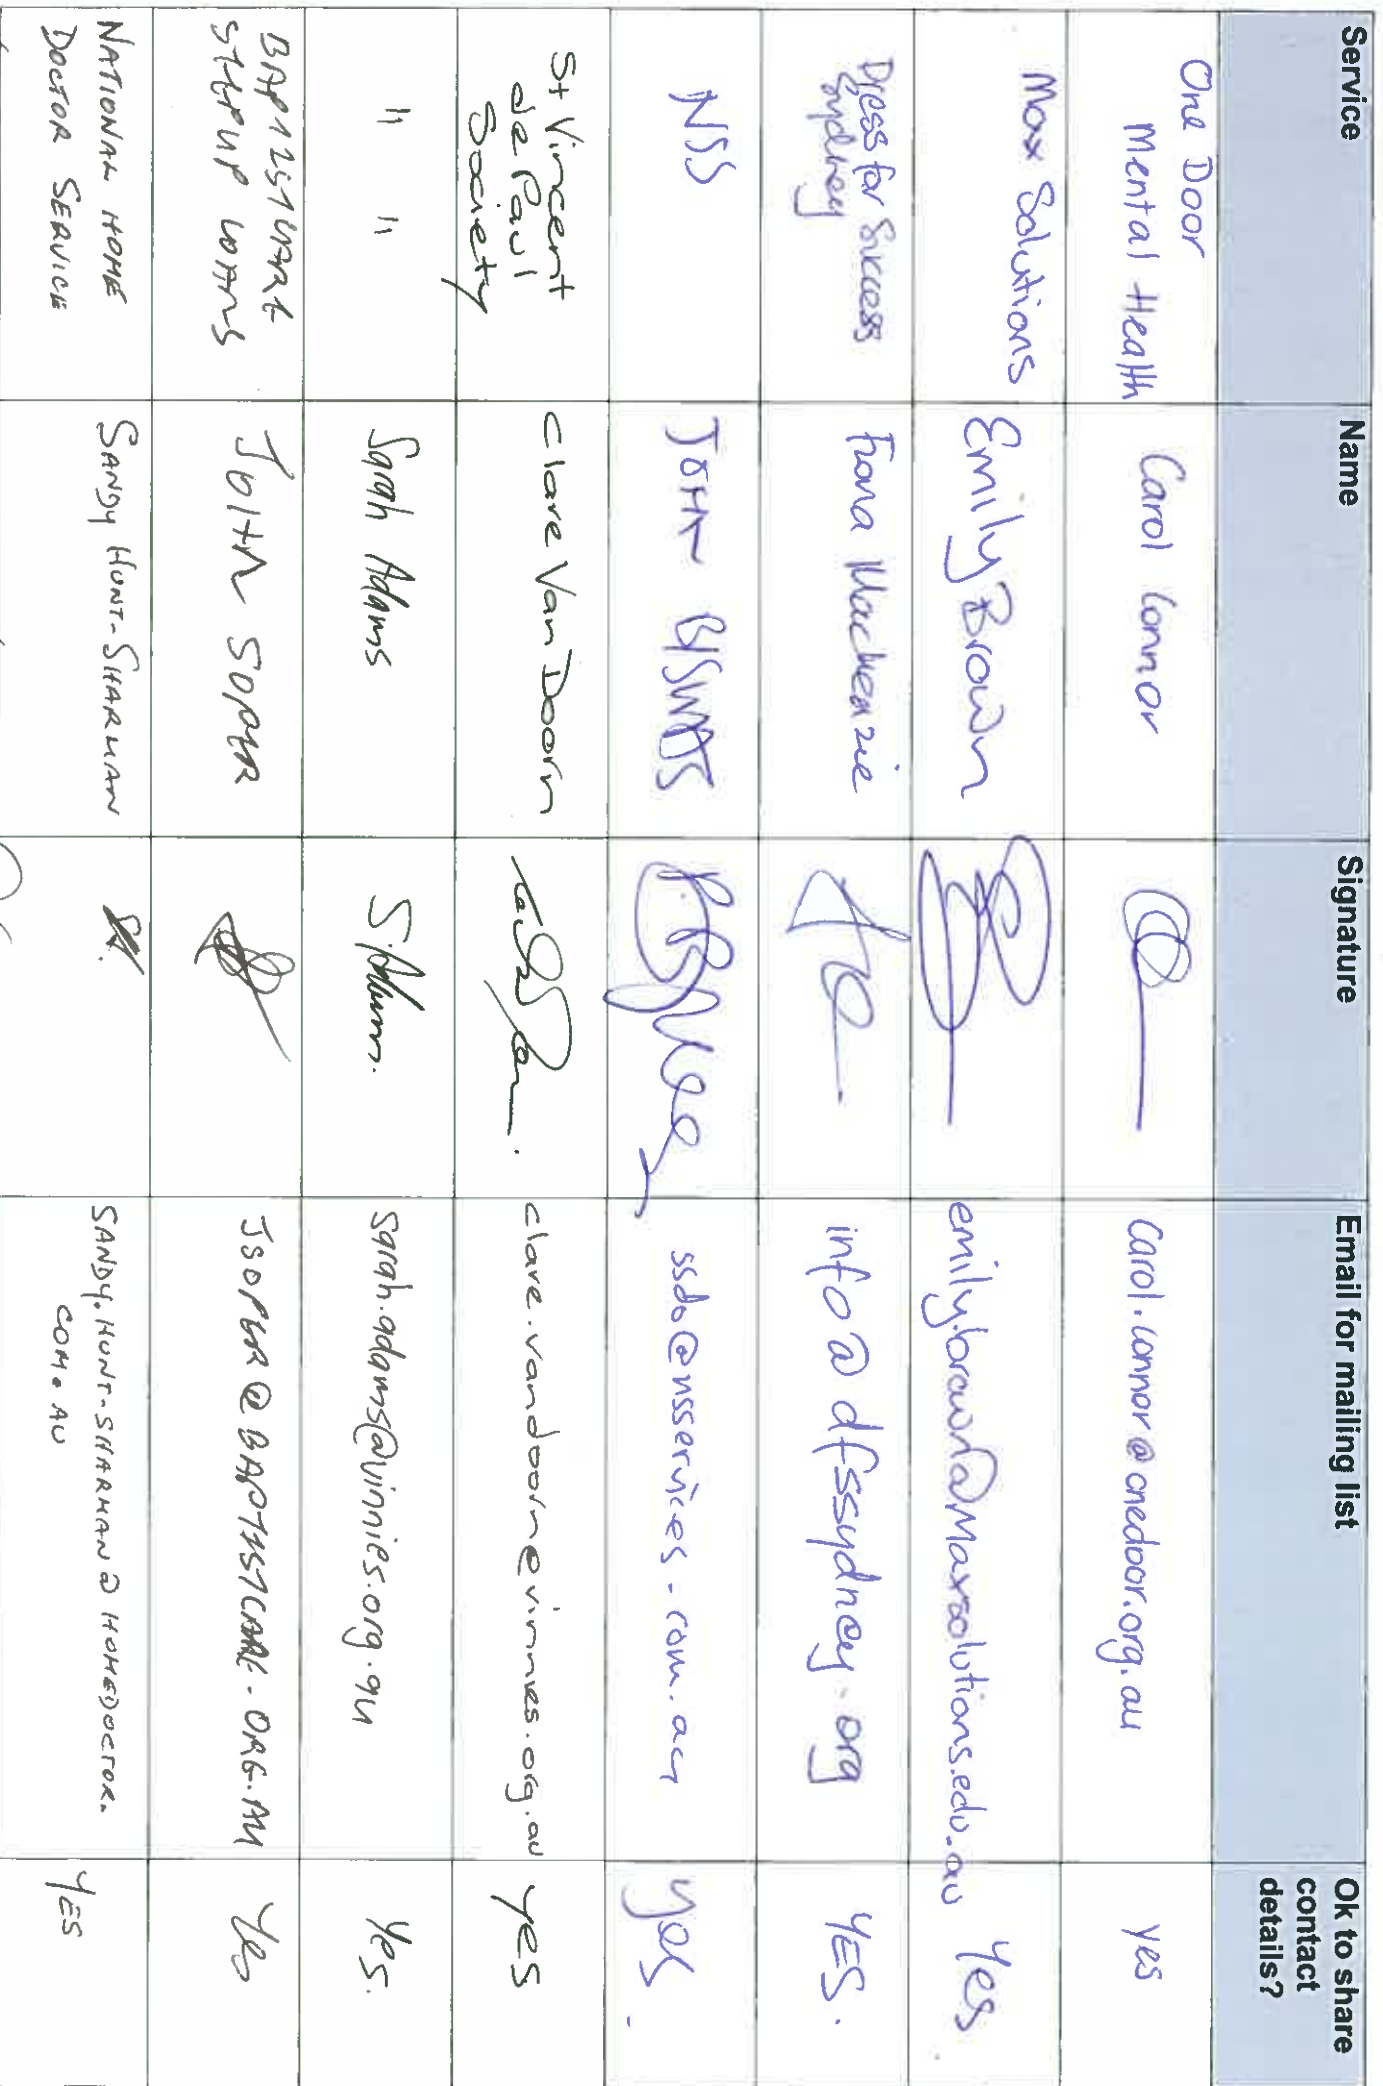 Service Name Signature Email for mailing list Ok to share contact details?
One Door
Mental Health Carol Connor Carol.connor@onedoor.org.au yes
Max Solutions Emily Brown emily.brown@Maxsolutions.edu.au Yes
Dress for Success
Sydney Fiona Mackenzie info@dfssydney.org YES.
NSS JOHN BISWAS ssdo@nsservices.com.au yes.
St Vincent
de Paul
Society Clare Van Doorn clare.vandoorn@vinnies.org.au yes
" " Sarah Adams S Adams. sarah.adams@vinnies.org.au Yes.
BAPTISTCARE
STEPUP LOANS JOHN SOPER JSOPER@BAPTISTCARE.ORG.AU Yes
NATIONAL HOME
DOCTOR SERVICE SANDY HUNT-SHARMAN SANDY.HUNT-SHARMAN@HOMEDOCTOR.
COM.AU YES